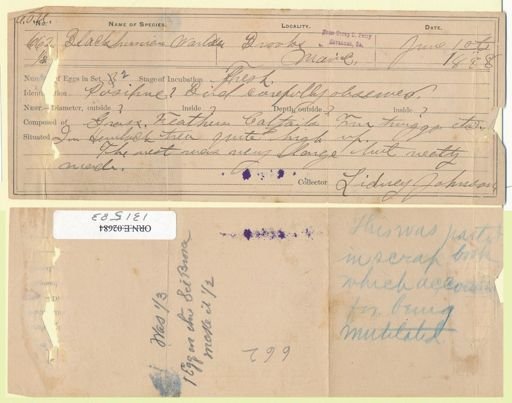 No. NAME OF SPECIES. LOCALITY. DATE.
From Troup D. Perry
Savannah, Ga.
662 Blackburnian Warbler Brooks June 10th
1/2 Maine. 1898
Number of Eggs in Set 2 Stage of Incubation Fresh
Identification Positive? Bird carefully observed
NEST—Diameter, outside ? Inside ? Depth, outside ? Inside ?
Composed of Grass, Feathers Cattails Fine twiggs etc.
Situated In Hemlock tree quite high up.
The nest was very large but neatly
made.
Collector Sidney Johnson
ORN:E.02684
131583
Was 1/3
1 Egg in the Set Broken
made it 1/2
662
This was pasted
in scrap book
which accounts
for being
mutilated